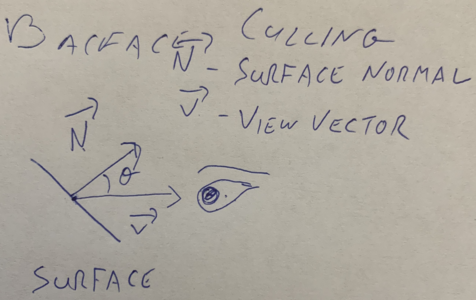 BACFACE CULLING
N - SURFACE NORMAL
V - VIEW VECTOR
N
θ
V
SURFACE